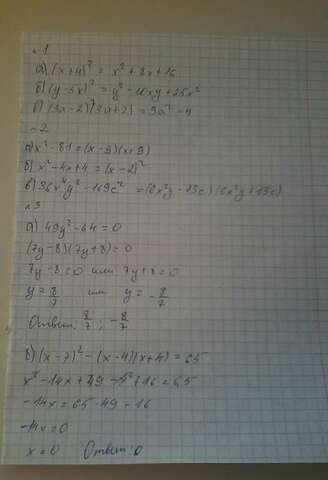 №1
а) (x+4)² = x² + 8x + 16
б) (y-5x)² = y² - 10xy + 25x²
в) (3a-2)(3a+2) = 9a² - 4
№2
а) x² - 81 = (x-9)(x+9)
б) x² - 4x + 4 = (x-2)²
в) 36x⁴y² - 169c² = (6x²y - 13c)(6x²y + 13c)
№3
а) 49y² - 64 = 0
(7y-8)(7y+8) = 0
7y-8=0 или 7y+8=0
y = 8/7 или y = -8/7
Ответ: 8/7 ; -8/7
б) (x-7)² - (x-4)(x+4) = 65
x² - 14x + 49 - x² + 16 = 65
-14x = 65 - 49 - 16
-14x = 0
x = 0 Ответ: 0